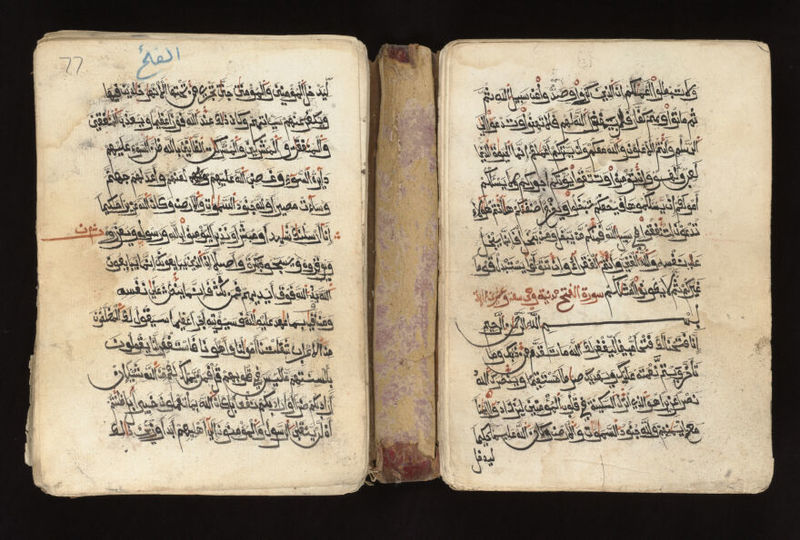 ولا تبطلوا أعملكم إن الذين كفروا وصدوا عن سبيل الله ثم
ثم ماتوا وهم كفار فلن يغفر الله لهم فلا تهنوا وتدعوا إلى
السلم وأنتم الأعلون والله معكم ولن يتركم أعملكم إنما الحيوة الدنيا
لعب ولهو وإن تومنوا وتتقوا يوتكم أجوركم ولا يسئلكم
أمولكم إن يسئلكموها فيحفكم تبخلوا ويخرج أضغنكم هأنتم هؤلاء
تدعون لتنفقوا في سبيل الله فمنكم من يبخل ومن يبخل فإنما يبخل
عن نفسه والله الغني وأنتم الفقراء وإن تتولوا يستبدل قوما
غيركم ثم لا يكونوا أمثلكم سورة الفتح مدنية وهي تسع وعشرون
بسم الله الرحمن الرحيم
إنا فتحنا لك فتحا مبينا ليغفر لك الله ما تقدم من ذنبك وما
تأخر ويتم نعمته عليك ويهديك صرطا مستقيما وينصرك الله
نصرا عزيزا هو الذي أنزل السكينة في قلوب المومنين ليزدادوا إيمنا
مع إيمنهم ولله جنود السموت والأرض وكان الله عليما حكيما
ليدخل
77
الفتح
ليدخل المومنين والمومنت جنت تجري من تحتها الأنهر خلدين فيها
ويكفر عنهم سياتهم وكان ذلك عند الله فوزا عظيما ويعذب المنفقين
والمنفقت والمشركين والمشركت الظانين بالله ظن السوء عليهم
دائرة السوء وغضب الله عليهم ولعنهم وأعد لهم جهنم
وساءت مصيرا ولله جنود السموت والأرض وكان الله عزيزا حكيما
إنا أرسلنك شهدا ومبشرا ونذيرا لتومنوا بالله ورسوله وتعزروه
وتوقروه وتسبحوه بكرة وأصيلا إن الذين يبايعونك إنما يبايعون
الله يد الله فوق أيديهم فمن نكث فإنما ينكث على نفسه
ومن أوفى بما عهد عليه الله فسيوتيه أجرا عظيما سيقول لك المخلفون
من الأعراب شغلتنا أمولنا وأهلونا فاستغفر لنا يقولون
بألسنتهم ما ليس في قلوبهم قل فمن يملك لكم من الله شيا إن
أراد بكم ضرا أو أراد بكم نفعا بل كان الله بما تعملون خبيرا بل ظننتم
أن لن ينقلب الرسول والمومنون إلى أهليهم أبدا وزين ذلك